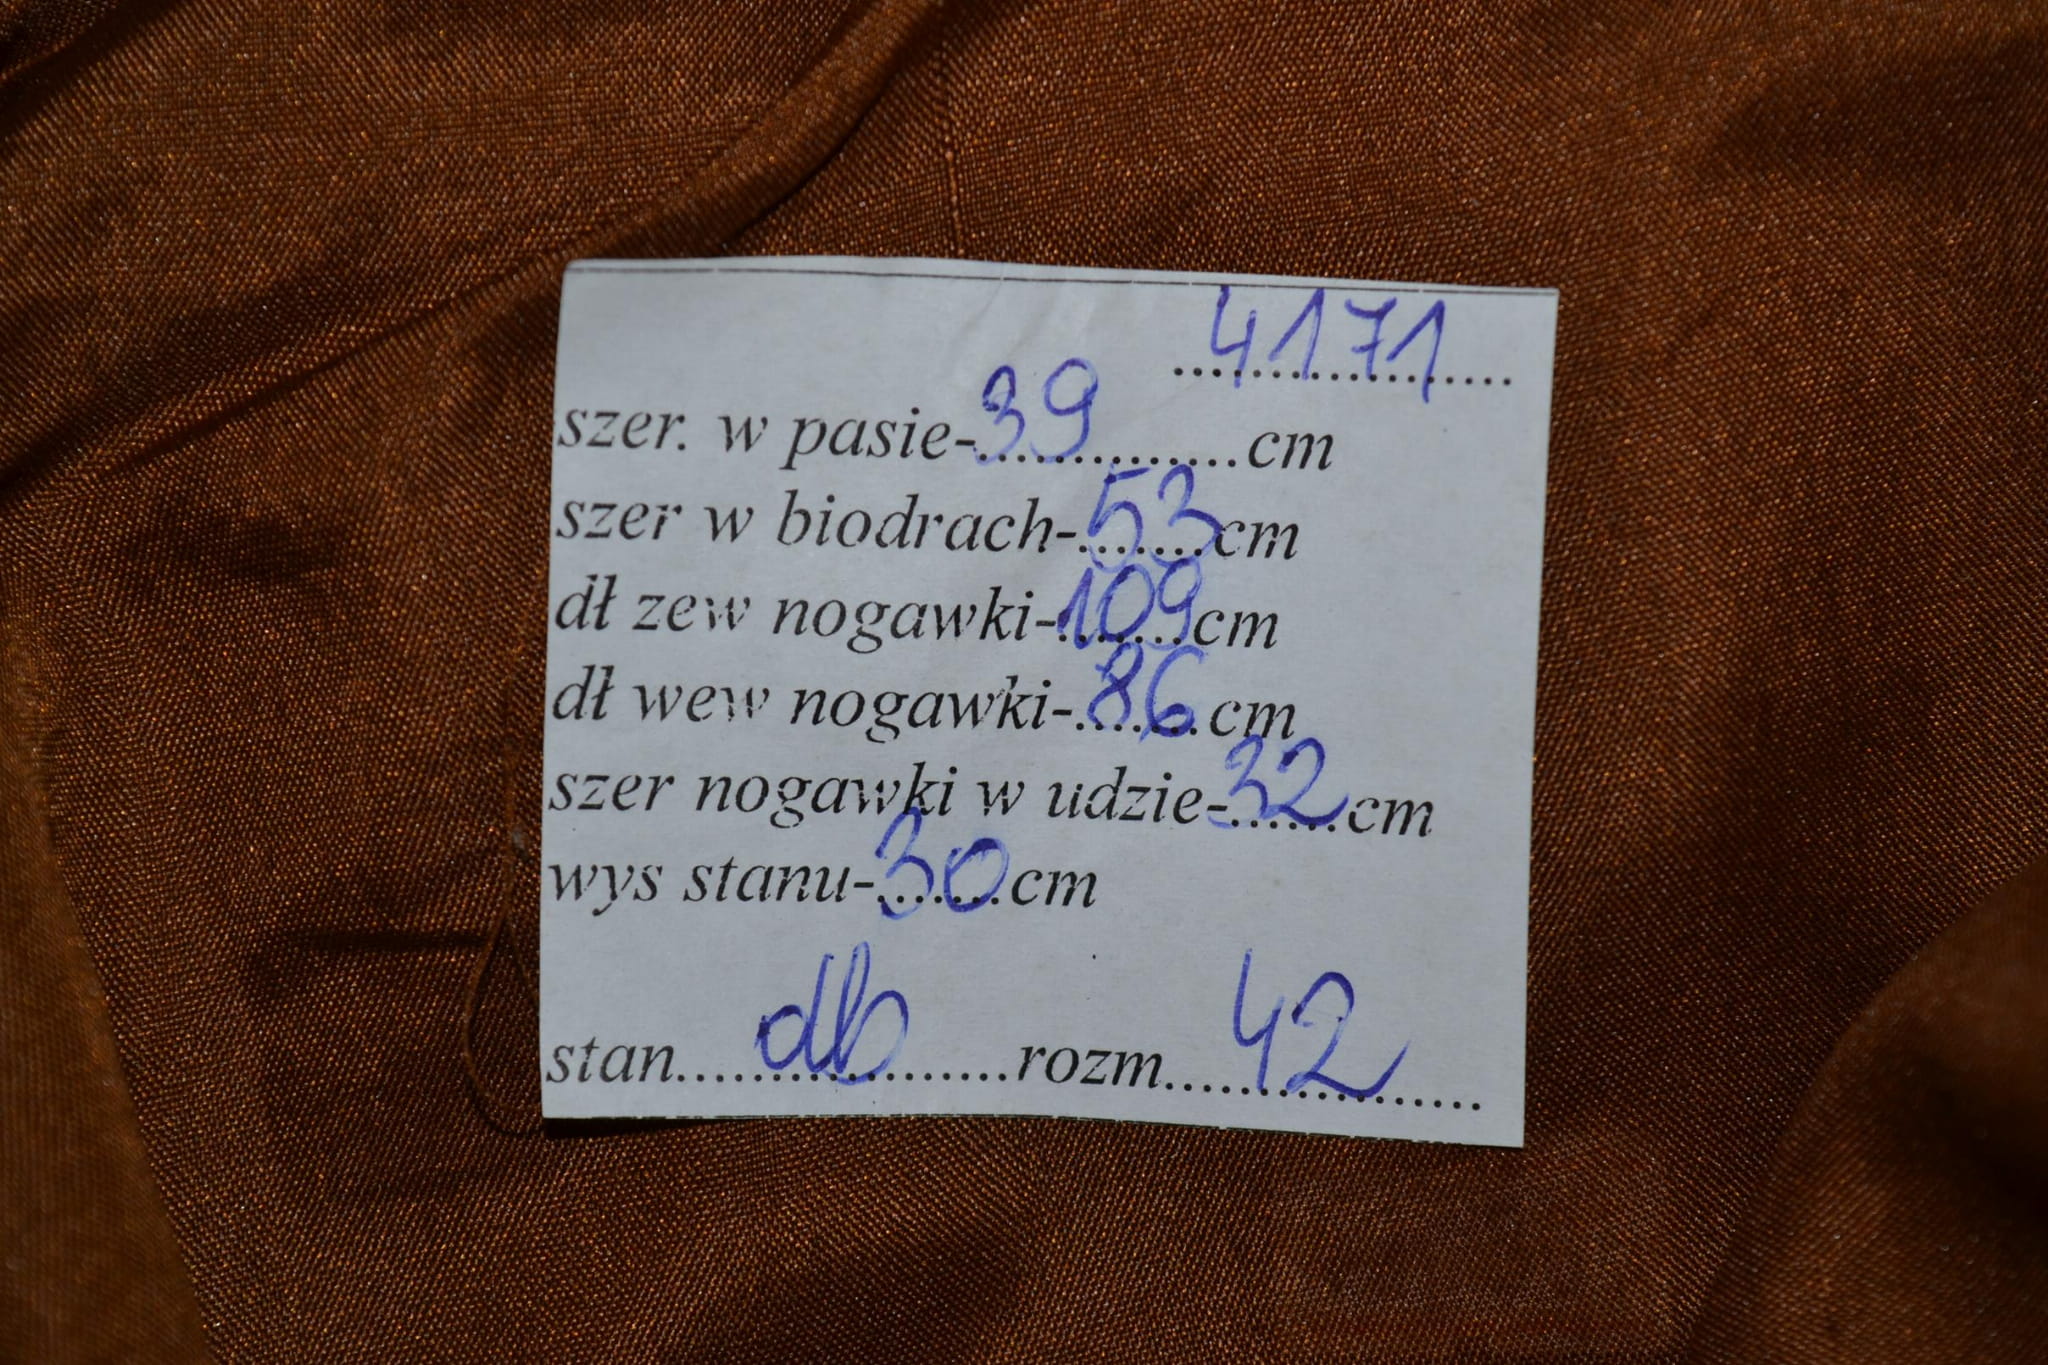 4171
szer. w pasie-39..............cm
szer w biodrach-53cm
dł zew nogawki-109cm
dł wew nogawki-86cm
szer nogawki w udzie-32cm
wys stanu-30cm
stan....db....rozm....42....